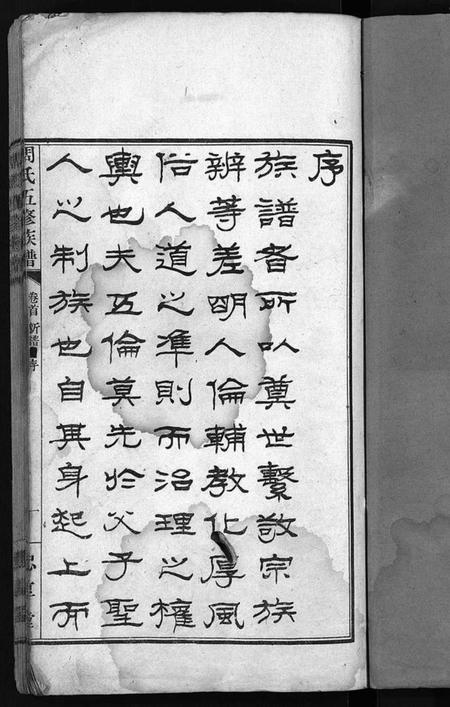 序
族譜者所以奠世繫敬宗族
辨等差明人倫輔教化厚風
俗人道之準則而治理之權
輿也夫五倫莫先於父子聖
人之制族也自其身起上而
周氏五修族譜
卷首 新譜 序
一
忠 堂